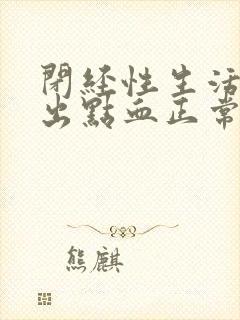 閉経性生活
出點血正常
熊麒